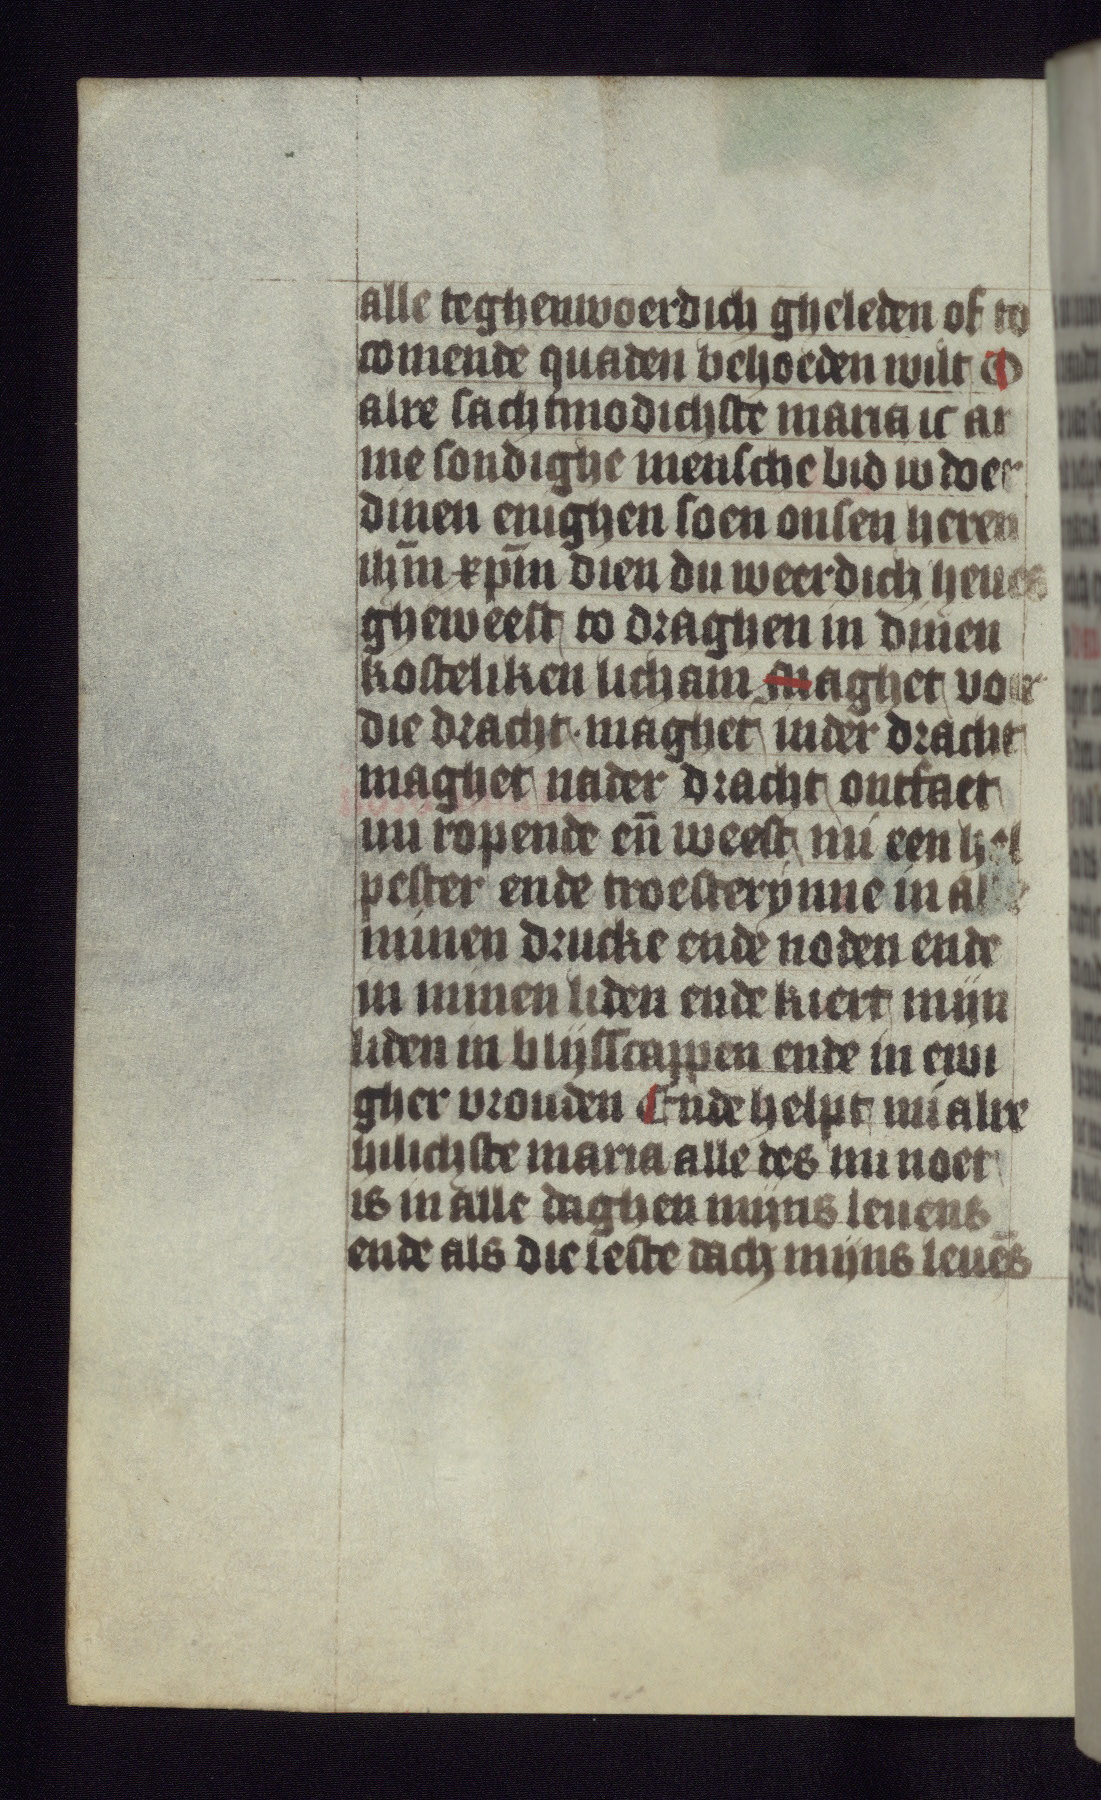 alle teghenwoerdich gheleden of to
comende quaden behoeden wilt O
alre sachtmodichste maria ic ar
me sondighe mensche bid iv doer
dinen enighen soen onsen heren
ihm̄ xpm̄ dien du weerdich heues
gheweest to draghen in dinen
kosteliken licham maghet voer
die dracht · maghet inder dracht
maghet nader dracht ontfaet
mi ropende en̄ weest mi een hel
pester ende troesterynne in alle
minen drucke ende noden ende
in minen liden ende kiert mijn
liden in blijsscappen ende in ewi
gher vrouden Ende helpt mi alre
hilichste maria alle des mi noet
is in alle daghen mijns leuens
ende als die leste dach mijns leuēs